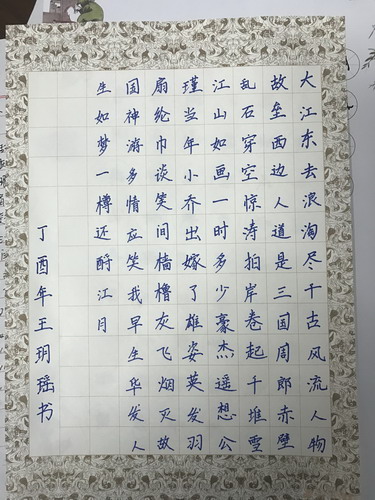 大江东去浪淘尽千古风流人物
故垒西边人道是三国周郎赤壁
乱石穿空惊涛拍岸卷起千堆雪
江山如画一时多少豪杰遥想公
瑾当年小乔出嫁了雄姿英发羽
扇纶巾谈笑间樯橹灰飞烟灭故
国神游多情应笑我早生华发人
生如梦一樽还酹江月
丁酉年王玥瑶书